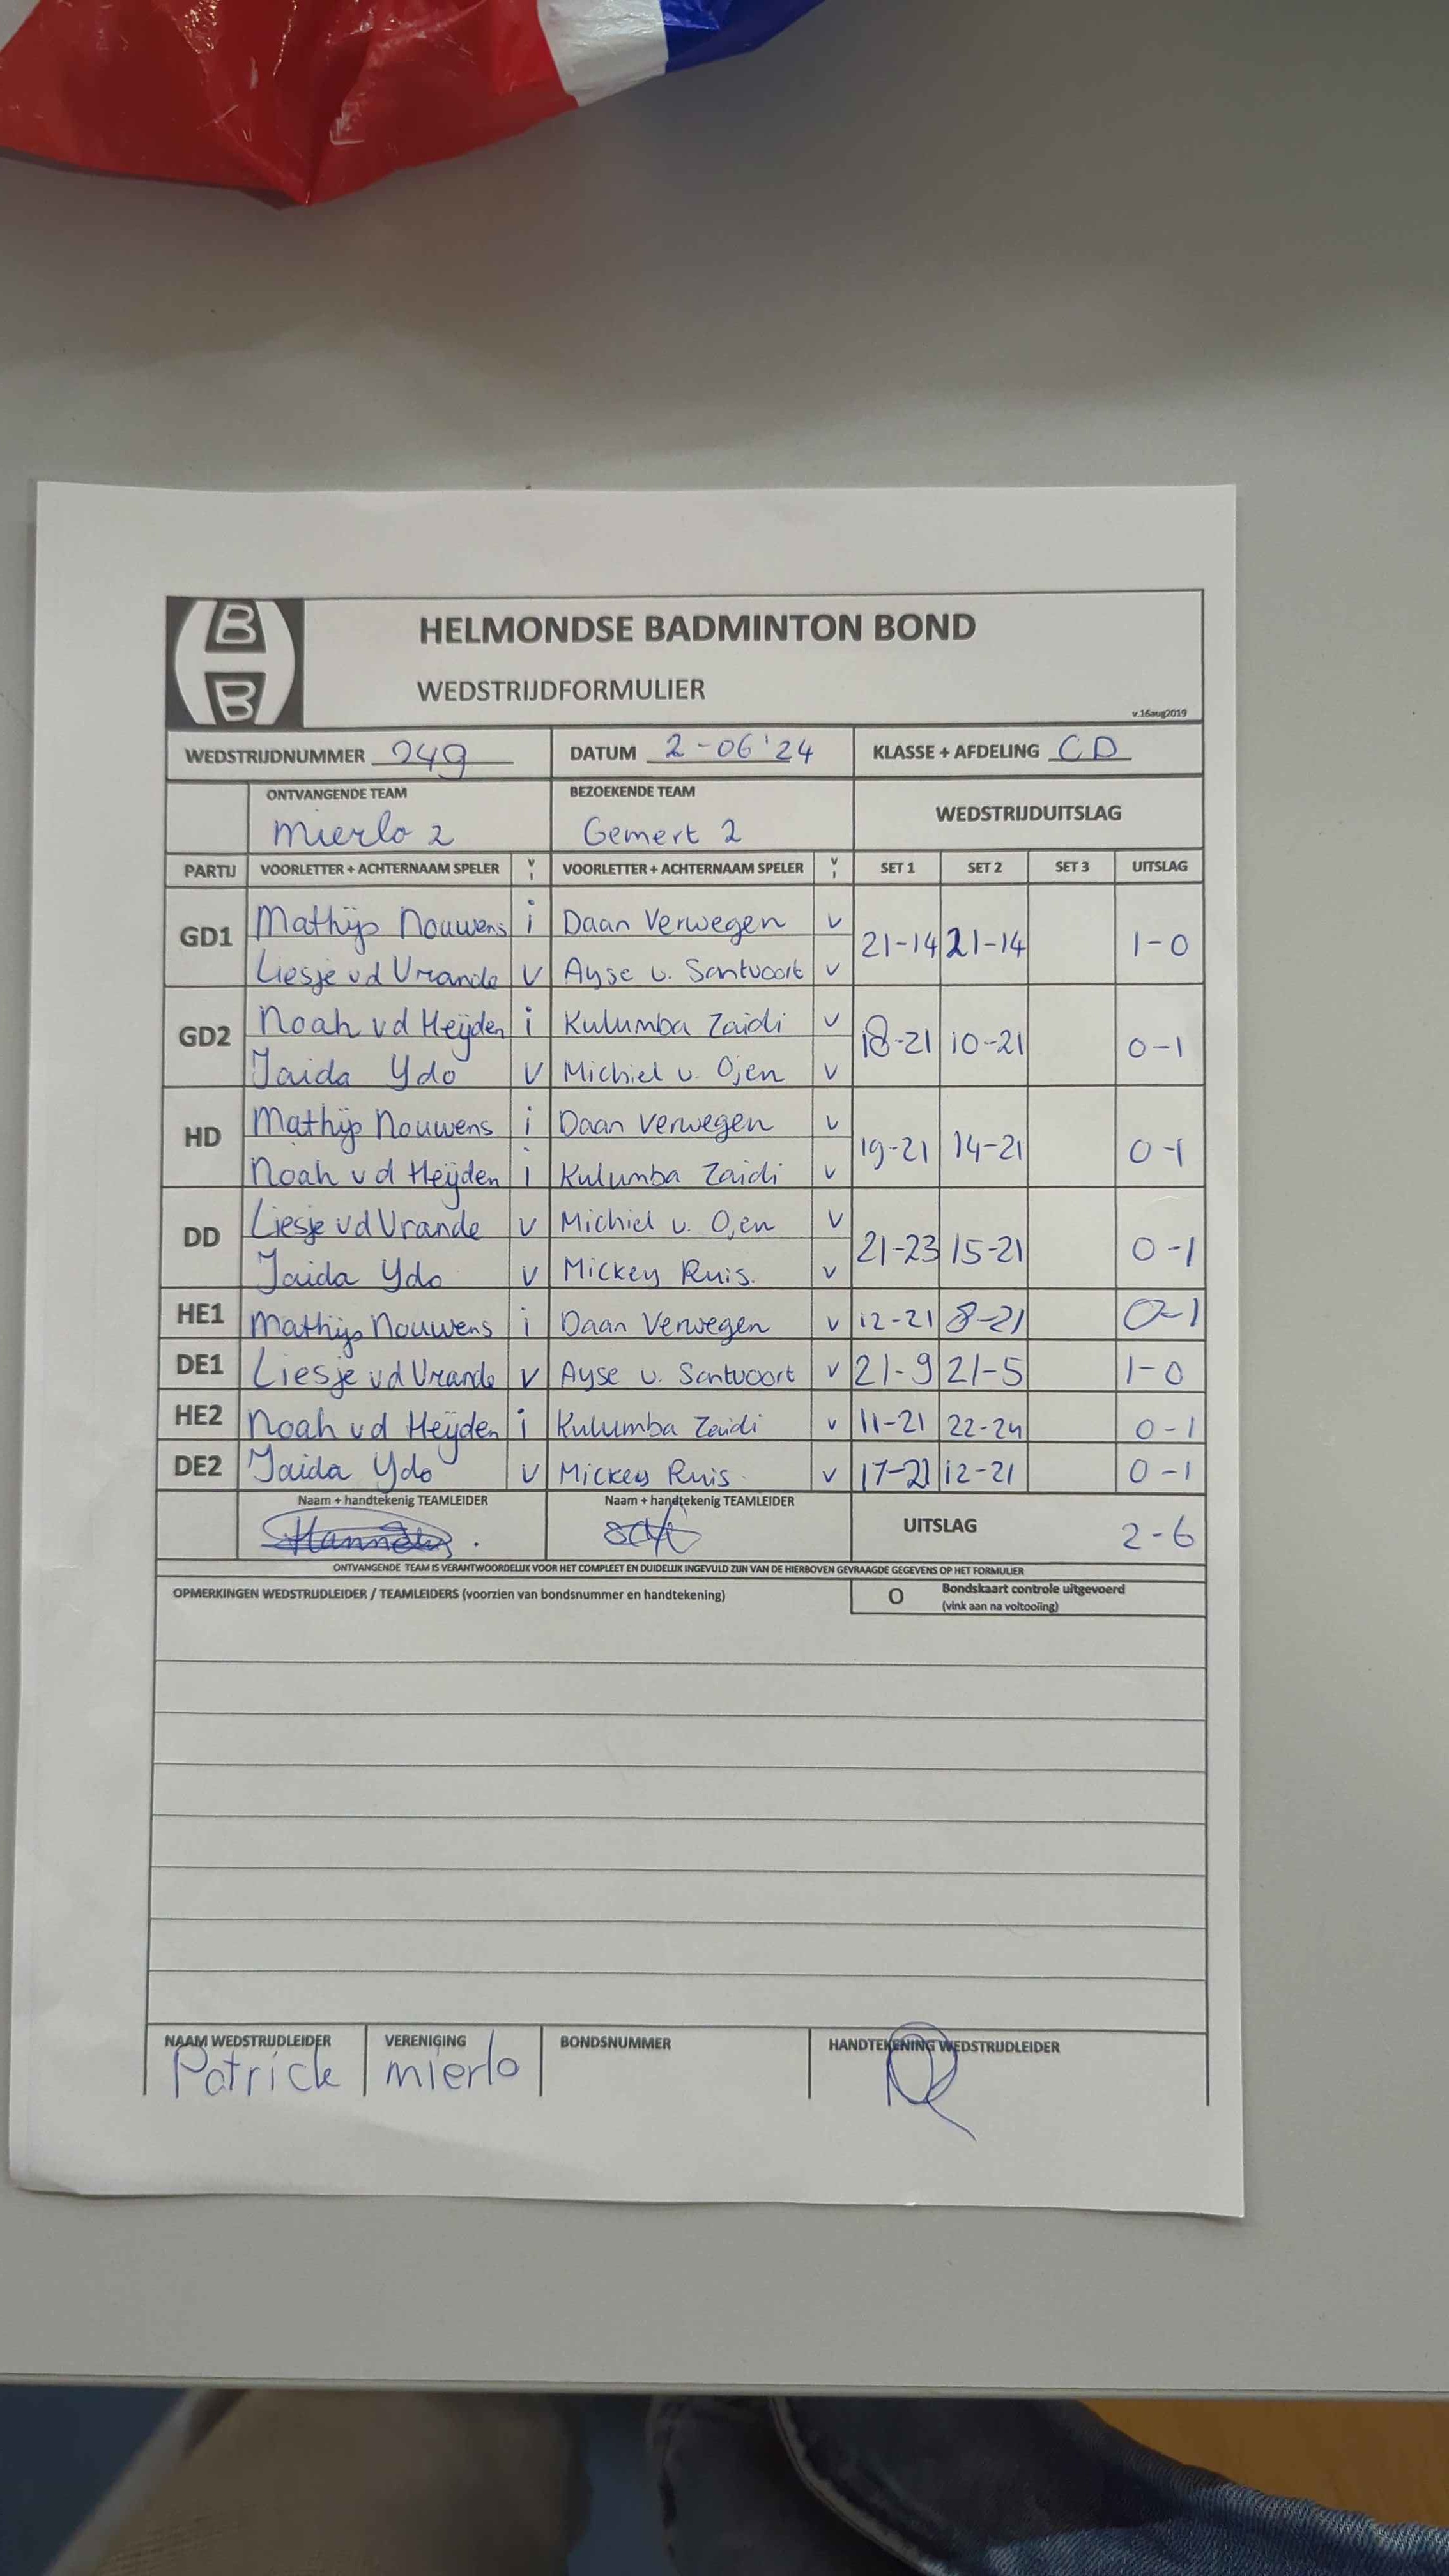 B
B
HELMONDSE BADMINTON BOND
WEDSTRIJDFORMULIER
v.16aug2019
WEDSTRIJDNUMMER 249 DATUM 2-06'24 KLASSE + AFDELING CD
ONTVANGENDE TEAM BEZOEKENDE TEAM WEDSTRIJDUITSLAG
Mierlo 2 Gemert 2
PARTIJ VOORLETTER + ACHTERNAAM SPELER V I VOORLETTER + ACHTERNAAM SPELER V I SET 1 SET 2 SET 3 UITSLAG
GD1 Mathijs Nouwens i Daan Verwegen v 21-14 21-14 1-0
Liesje vd Vrande v Ayse v. Santvoort v
GD2 Noah vd Heijden i Kulumba Zaidi v 18-21 10-21 0-1
Jaida Ydo v Michiel v. Ojen v
HD Mathijs Nouwens i Daan Verwegen v 19-21 14-21 0-1
Noah vd Heijden i Kulumba Zaidi v
DD Liesje vd Vrande v Michiel v. Ojen v 21-23 15-21 0-1
Jaida Ydo v Mickey Ruis. v
HE1 Mathijs Nouwens i Daan Verwegen v 12-21 8-21 0-1
DE1 Liesje vd Vrande v Ayse v. Santvoort v 21-9 21-5 1-0
HE2 Noah vd Heijden i Kulumba Zaidi v 11-21 22-24 0-1
DE2 Jaida Ydo v Mickey Ruis v 17-21 12-21 0-1
Naam + handtekenig TEAMLEIDER Naam + handtekenig TEAMLEIDER UITSLAG 2-6
ONTVANGENDE TEAM IS VERANTWOORDELIJK VOOR HET COMPLEET EN DUIDELIJK INGEVULD ZIJN VAN DE HIERBOVEN GEVRAAGDE GEGEVENS OP HET FORMULIER
OPMERKINGEN WEDSTRIJDLEIDER / TEAMLEIDERS (voorzien van bondsnummer en handtekening) O Bondskaart controle uitgevoerd
(vink aan na voltooiing)
NAAM WEDSTRIJDLEIDER VERENIGING BONDSNUMMER HANDTEKENING WEDSTRIJDLEIDER
Patrick mierlo